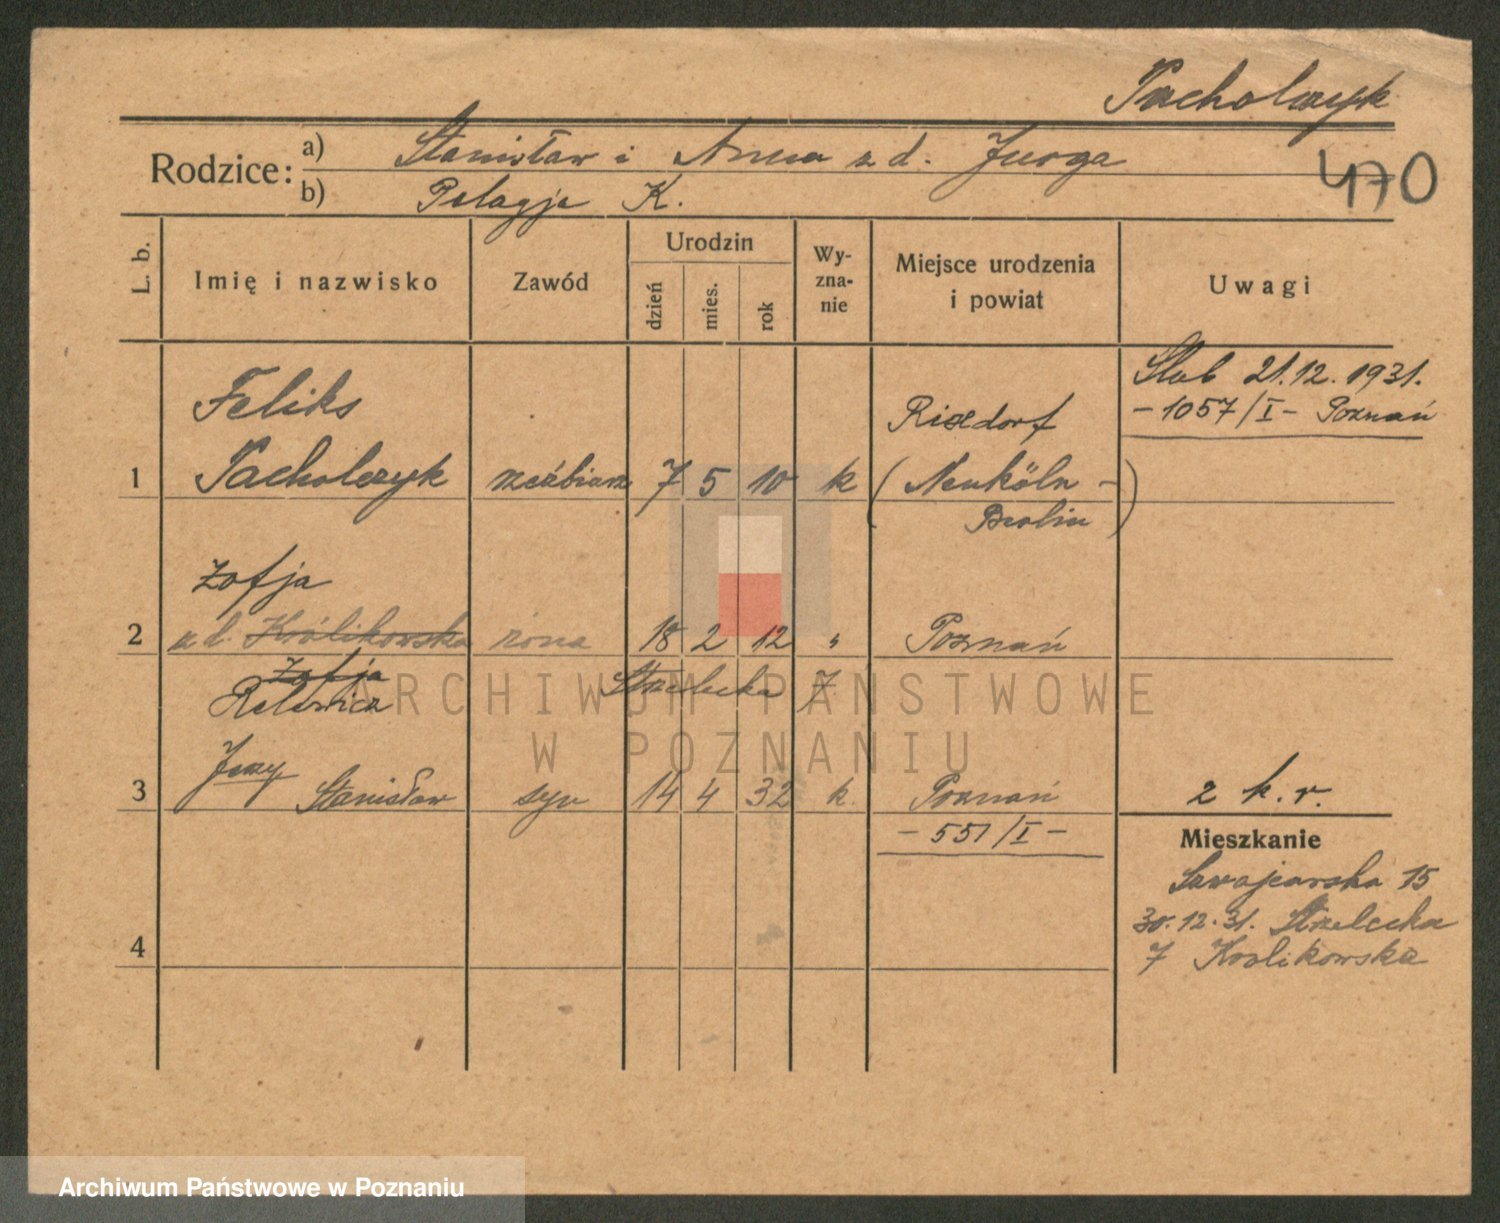 Pacholczyk
Rodzice: a) Stanisław i Anna z d. Jurga
470
b) Pelagja K.
L. b.
Imię i nazwisko
Zawód
Urodzin
dzień
mies.
rok
Wy-
zna-
nie
Miejsce urodzenia
i powiat
Uwagi
Ślub 21.12.1931.
-1057/I- Poznań
Feliks
Rixdorf
1 Pacholczyk rzeźbiarz 7 5 10 k (Neuköln -
Berlin)
Zofja
2 z d. Królikowska żona 18 2 12 " Poznań
Zofja Strzelecka 7
Jerzy
3 Stanisław syn 14 4 32 k. Poznań 2 k. r.
- 551/I -
Mieszkanie
15
30.12.31. Strzelecka
7 Krolikowska
4
ARCHIWUM PAŃSTWOWE
W POZNANIU
Archiwum Państwowe w Poznaniu